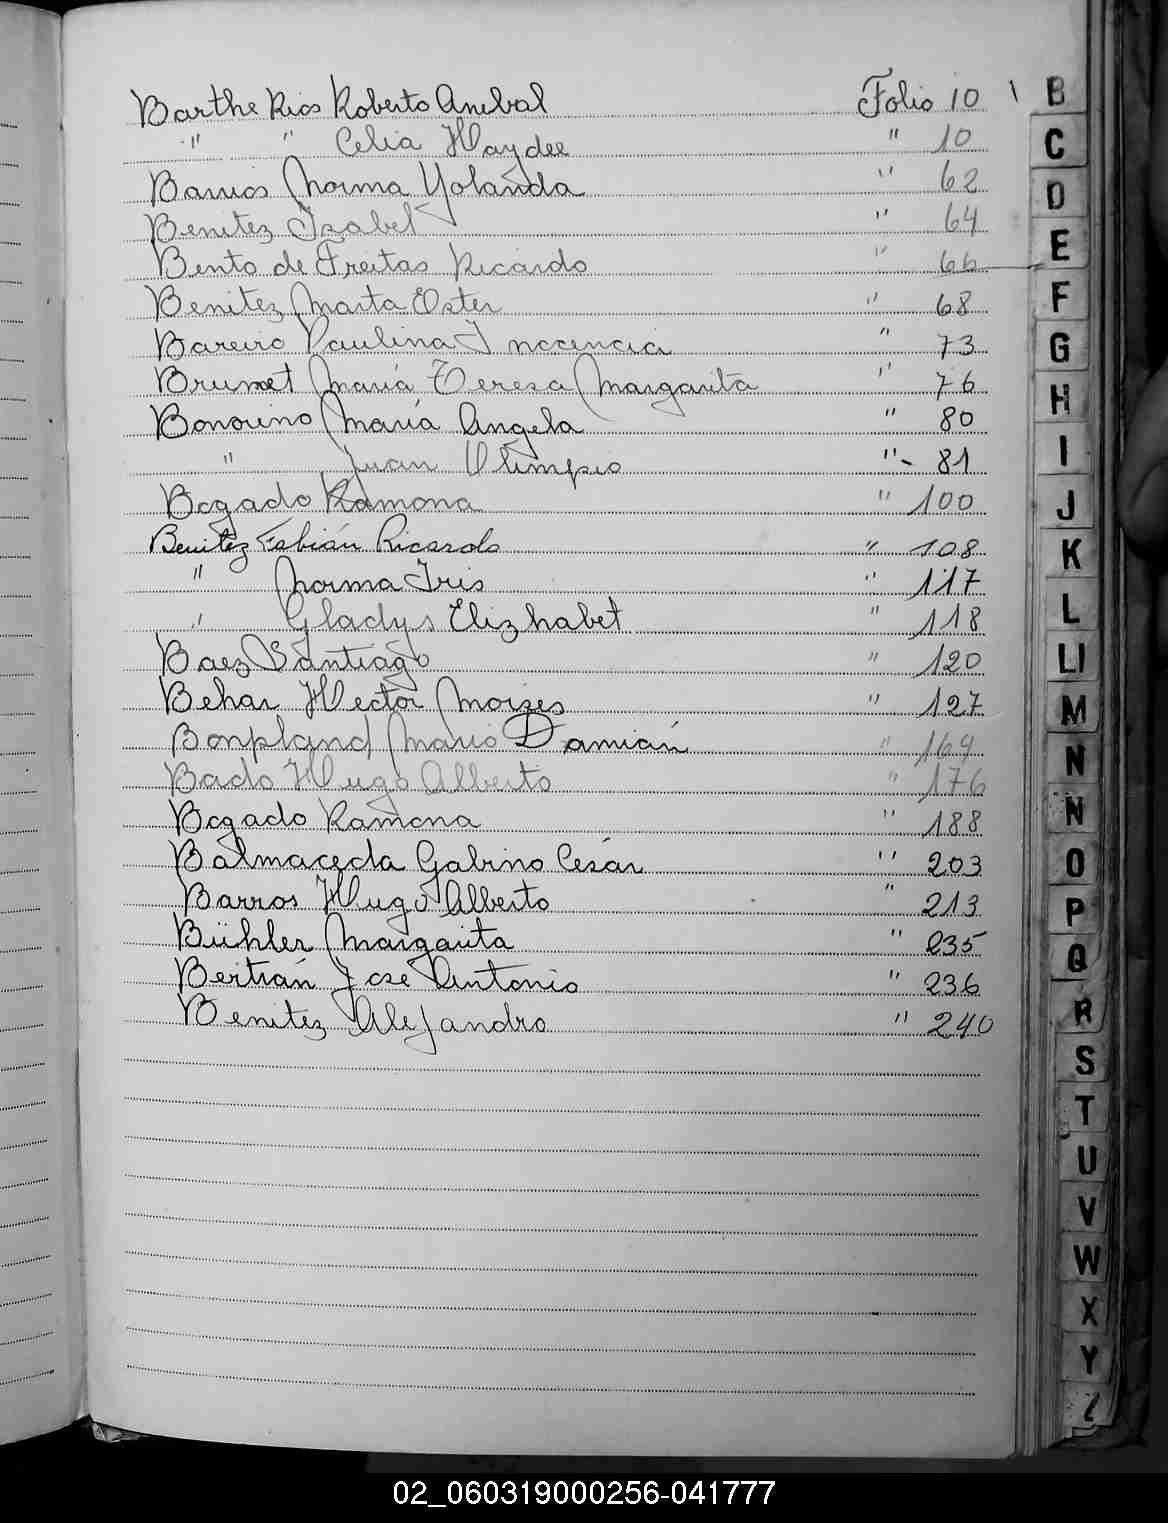 Barthe Rios Roberto Anibal Folio 10
" " Celia Haydee " 10
Barrios Norma Yolanda " 62
Benitez Isabel " 64
Bento de Freitas Ricardo " 66
Benitez Marta Ester " 68
Bareiro Paulina Inocencia " 73
Brunet María Teresa Margarita " 76
Bonorino María Angela " 80
" Juan Olimpio " 81
Bogado Ramona " 100
Benitez Fabián Ricardo " 108
" Norma Iris " 117
" Gladys Elizhabet " 118
Baez Santiago " 120
Behar Hector Moises " 127
Bonpland Mario Damián " 169
Bado Hugo Alberto " 176
Bogado Ramona " 188
Balmaceda Gabino César " 203
Barros Hugo Alberto " 213
Bühler Margarita " 235
Bertrán Jose Antonio " 236
Benitez Alejandro " 240
B
C
D
E
F
G
H
I
J
K
L
Ll
M
N
Ñ
O
P
Q
R
S
T
U
V
W
X
Y
Z
02_060319000256-041777